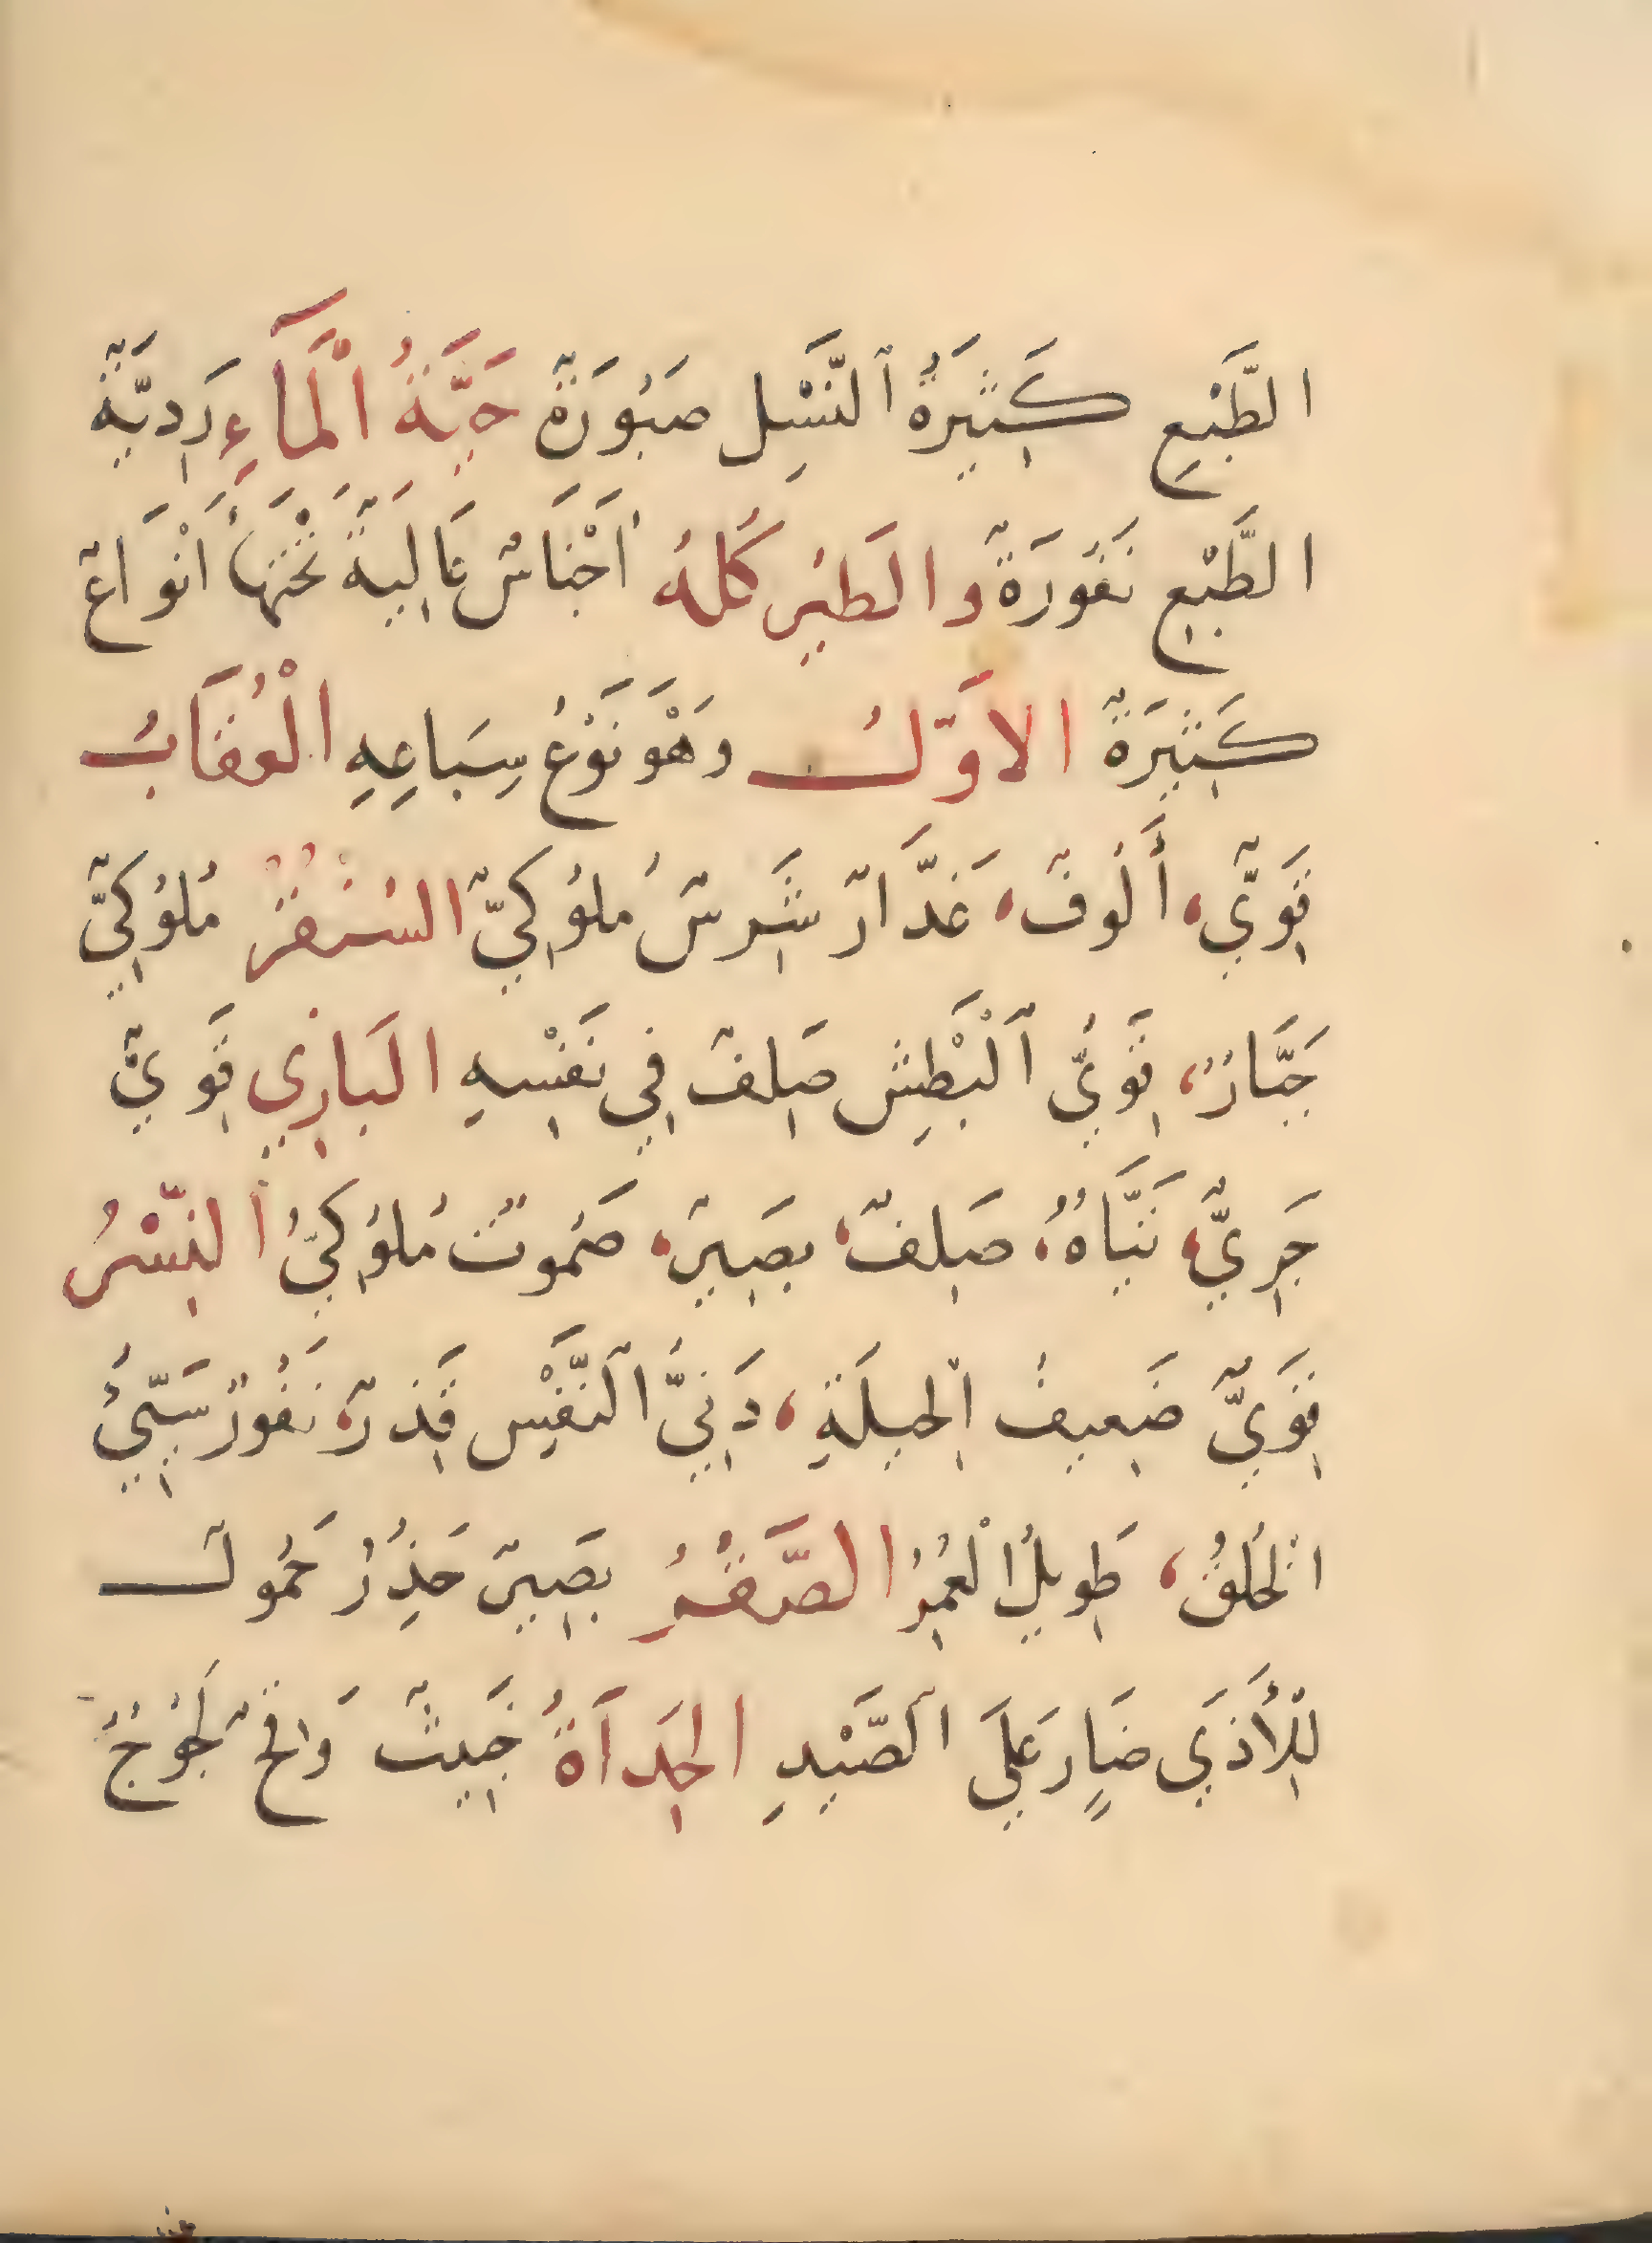 الطَّبْعِ كَثِيرَةُ ٱلنَّسْلِ صَبُورَةٌ حَيَّةُ الْمَآءِ رَدِيَّةٌ
الطَّبْعِ نَفُورَةٌ والطَيْرُ كُلهُ أَجْنَاسٌ عَالِيَةٌ تَحْتَهَا أَنْوَاعٌ
كَثِيرَةٌ الاوَّلُ وَهْوَ نَوْعُ سِبَاعِهِ الْعُقَابُ
قَوِيٌّ، أَلُوفٌ، غَدَّارٌ شَرِسٌ مُلُوكِيٌّ السُنْقُرُ مُلُوكِيٌّ
جَبَّارٌ، قَوِيُّ ٱلْبَطْشِ صَلِفٌ فِي نَفْسِهِ البَازِي قَوِيٌّ
جَرِيٌّ، تَيَّاهٌ، صَلِفٌ، بَصِيرٌ، صَمُوتٌ مُلُوكِيٌّ النِّسْرُ
قَوِيٌّ ضَعِيفُ الْحِيلَةِ، دَنِيُّ ٱلنَّفْسِ قَذِرٌ، نَفُورٌ سَيِّئُ
الْخُلُقُ، طَوِيلُ الْعُمْرِ الصَّقْرُ بَصِيرٌ حَذِرٌ حَمُولٌ
لِلْأَذَي ضَارٍ عَلَي ٱلصَّيْدِ الْحِدَاَةُ خَبِيثٌ وَقِحٌ لَجُوْجٌ